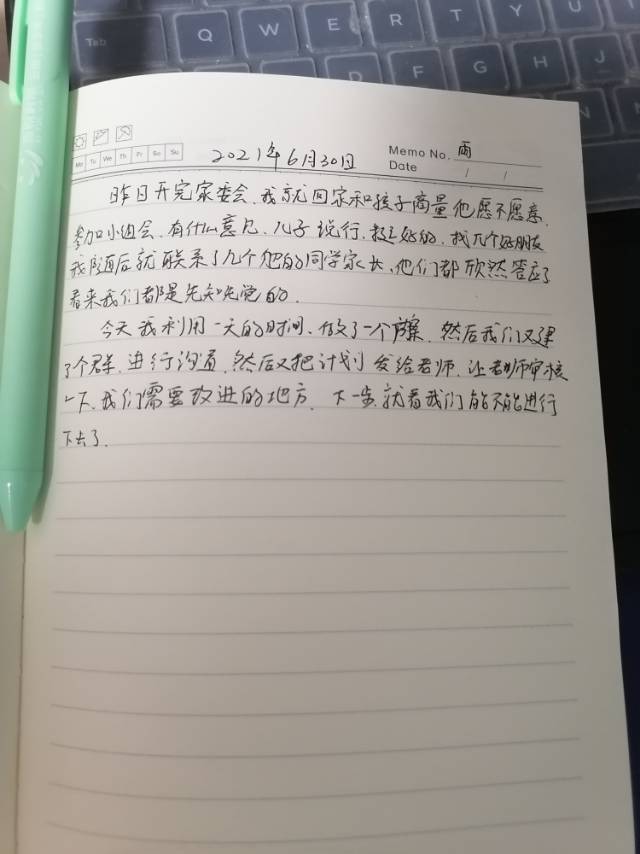 Tab Q W E R T Y U
D F G H J
Mo Tu We Th Fr Sa Su
2021年6月30日
Memo No. 雨
Date / /
昨日开完家委会、我就回家和孩子商量他愿不愿意、
参加小组会、有什么意见、儿子说行、挺好的、找几个好朋友
我随后就联系了几个他的同学家长、他们都欣然答应了
看来我们都是先知先觉的.
今天我利用一天的时间、做了一个方案、然后我们又建
了个群、进行沟通、然后又把计划发给老师、让老师审核
一下、我们需要改进的地方、下一步就看我们能不能进行
下去了.